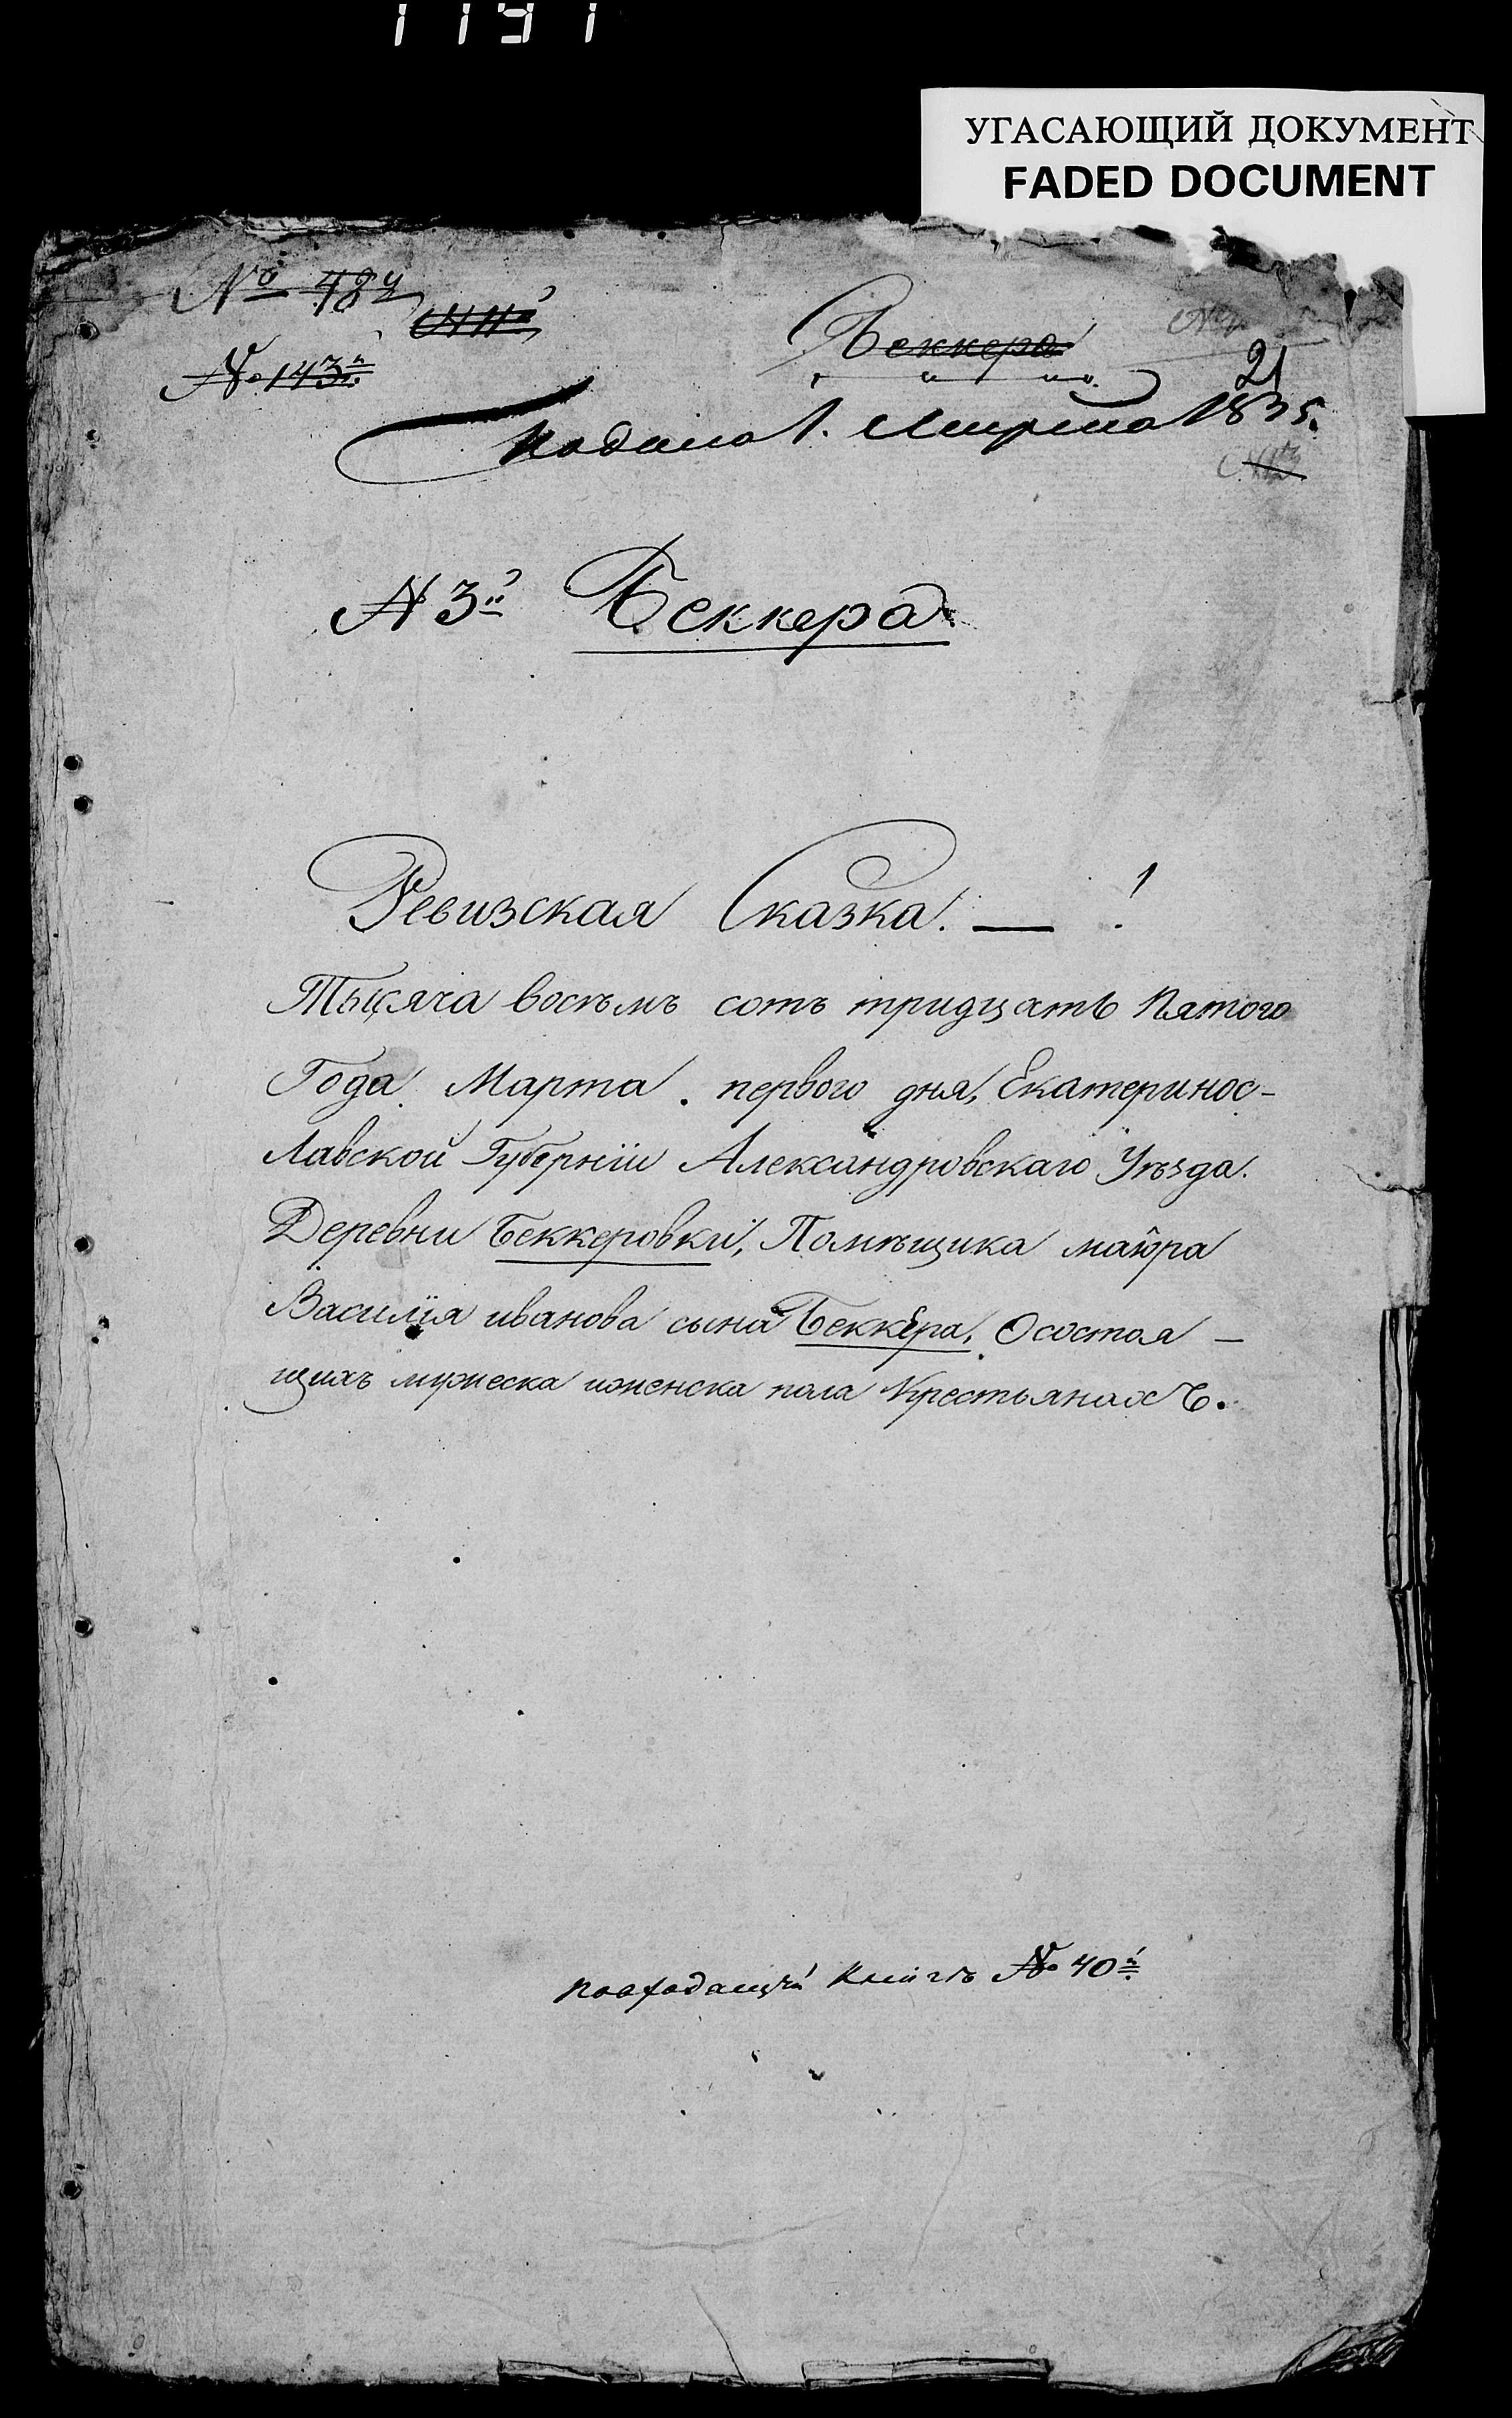 1191
УГАСАЮЩИЙ ДОКУМЕНТ
FADED DOCUMENT
№ 484
№ 11й
№ 143й
Беккера
21
Подана 1. Марта 1835.
№ 3й Беккера.
Ревизская Сказка. — !
Тысяча восъмъ сотъ тридцать Пятого
Года Марта . первого дня, Екатеринос-
лавской Губерніи Александровскаго Уѣзда.
Деревни Беккеровки, Помѣщика маіора
Василія иванова сына Беккера, Осостоя —
щихъ мужеска иженска пола Крестьянахъ.
Повходящей Книгѣ № 40й